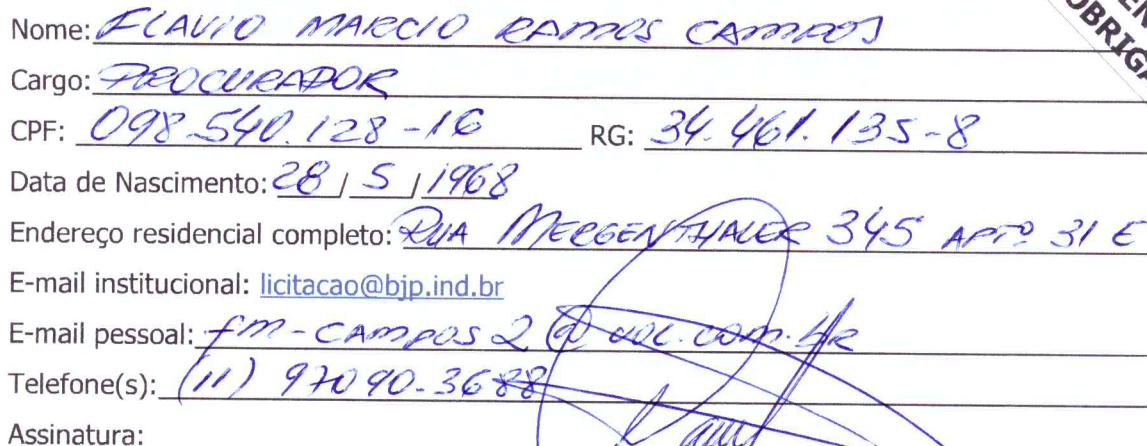 Nome: FLAVIO MARCIO RAMOS CAMPOS
Cargo: PROCURADOR
CPF: 098.540.128-16 RG: 34.461.135-8
Data de Nascimento: 28 / 5 / 1968
Endereço residencial completo: RUA MERGENTHALER 345 APTº 31 E
E-mail institucional: licitacao@bjp.ind.br
E-mail pessoal: fm-campos2@uol.com.br
Telefone(s): (11) 97090-3688
Assinatura: